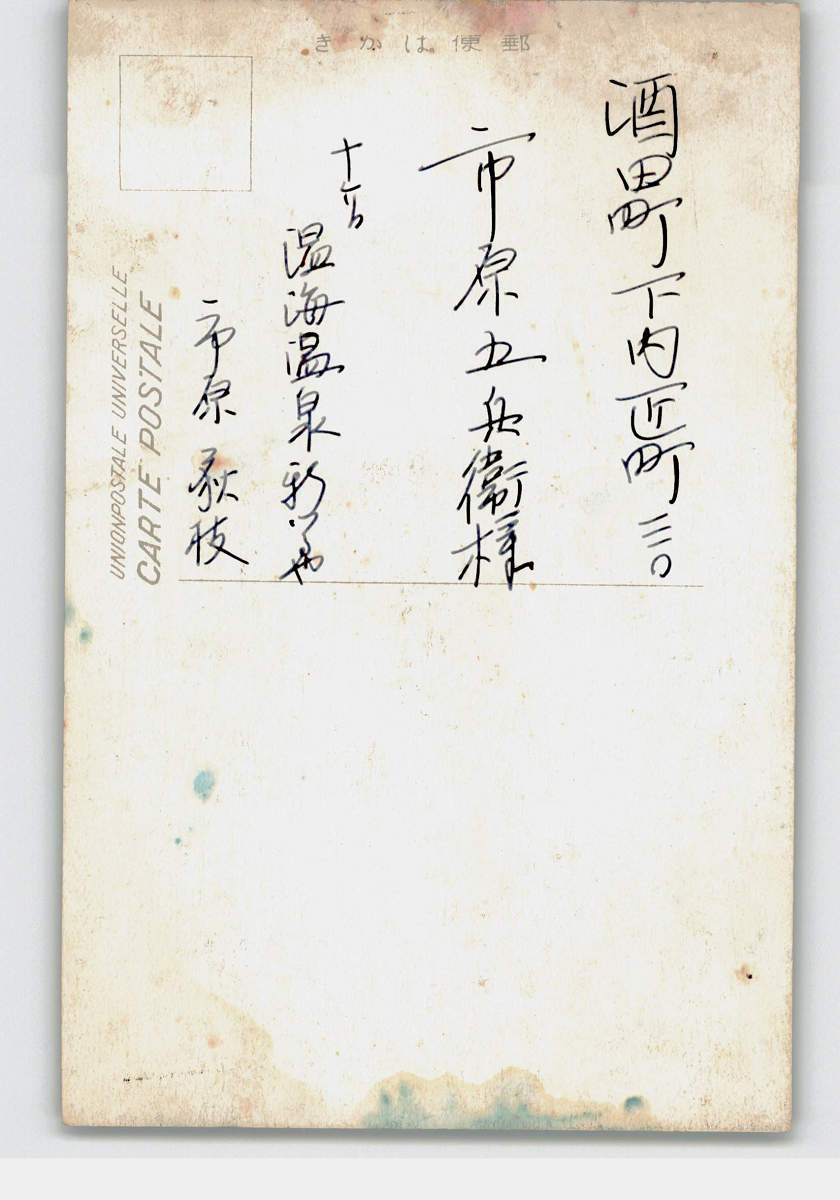 郵便はかき
酒田町下内匠町三二〇
市原五兵衛様
十六日
温海温泉新
市原荻枝
UNIONPOSTALE UNIVERSELLE
CARTE POSTALE